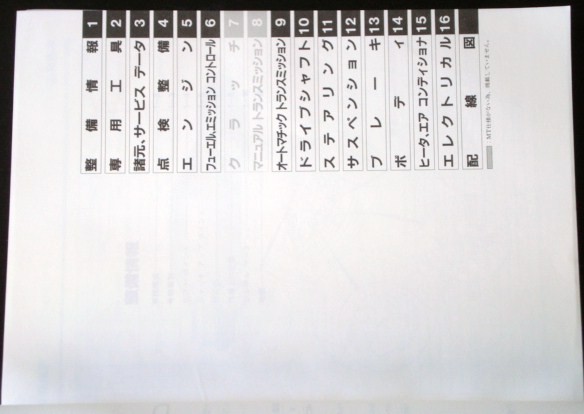 整備情報 1
専用工具 2
諸元、サービス データ 3
点検整備 4
エンジン 5
フューエル,エミッション コントロール 6
クラッチ 7
マニュアル トランスミッション 8
オートマチック トランスミッション 9
ドライブシャフト 10
ステアリング 11
サスペンション 12
ブレーキ 13
ボディ 14
ヒータ、エア コンディショナ 15
エレクトリカル 16
配線図
MT仕様がない為、掲載していません。